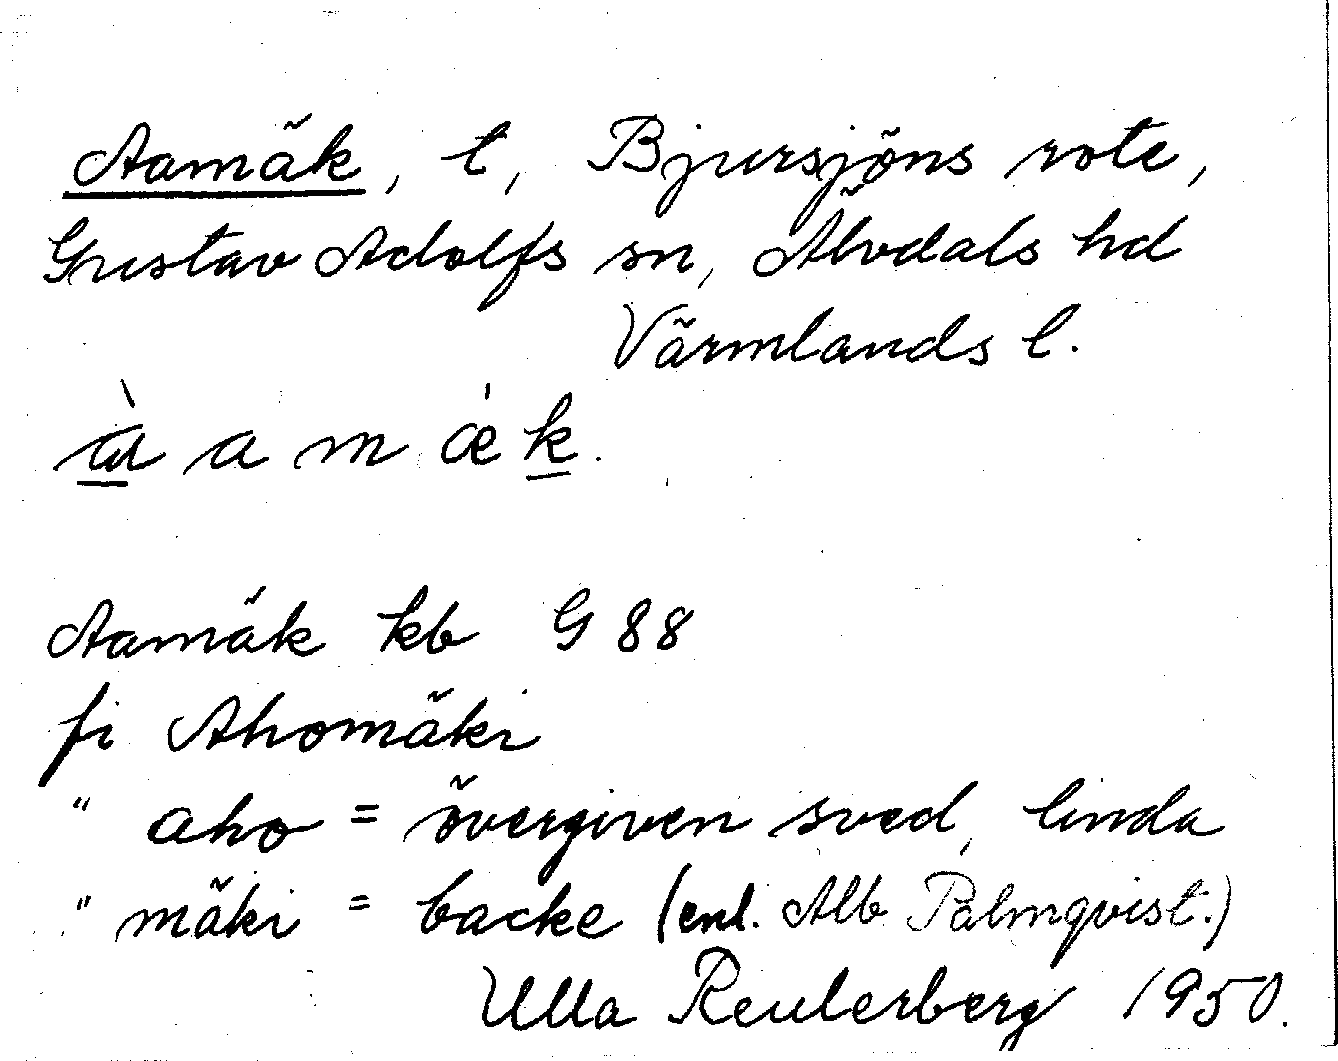 Aamäk, t, Bjursjöns rote,
Gustav Adolfs sn, Älvdals hd
Värmlands l.
à a m æ k.
Aamäk kb G 88
fi Ahomäki
" aho = övergiven sved, linda
" mäki = backe (enl. Alb Palmqvist.)
Ulla Reuterberg 1950.